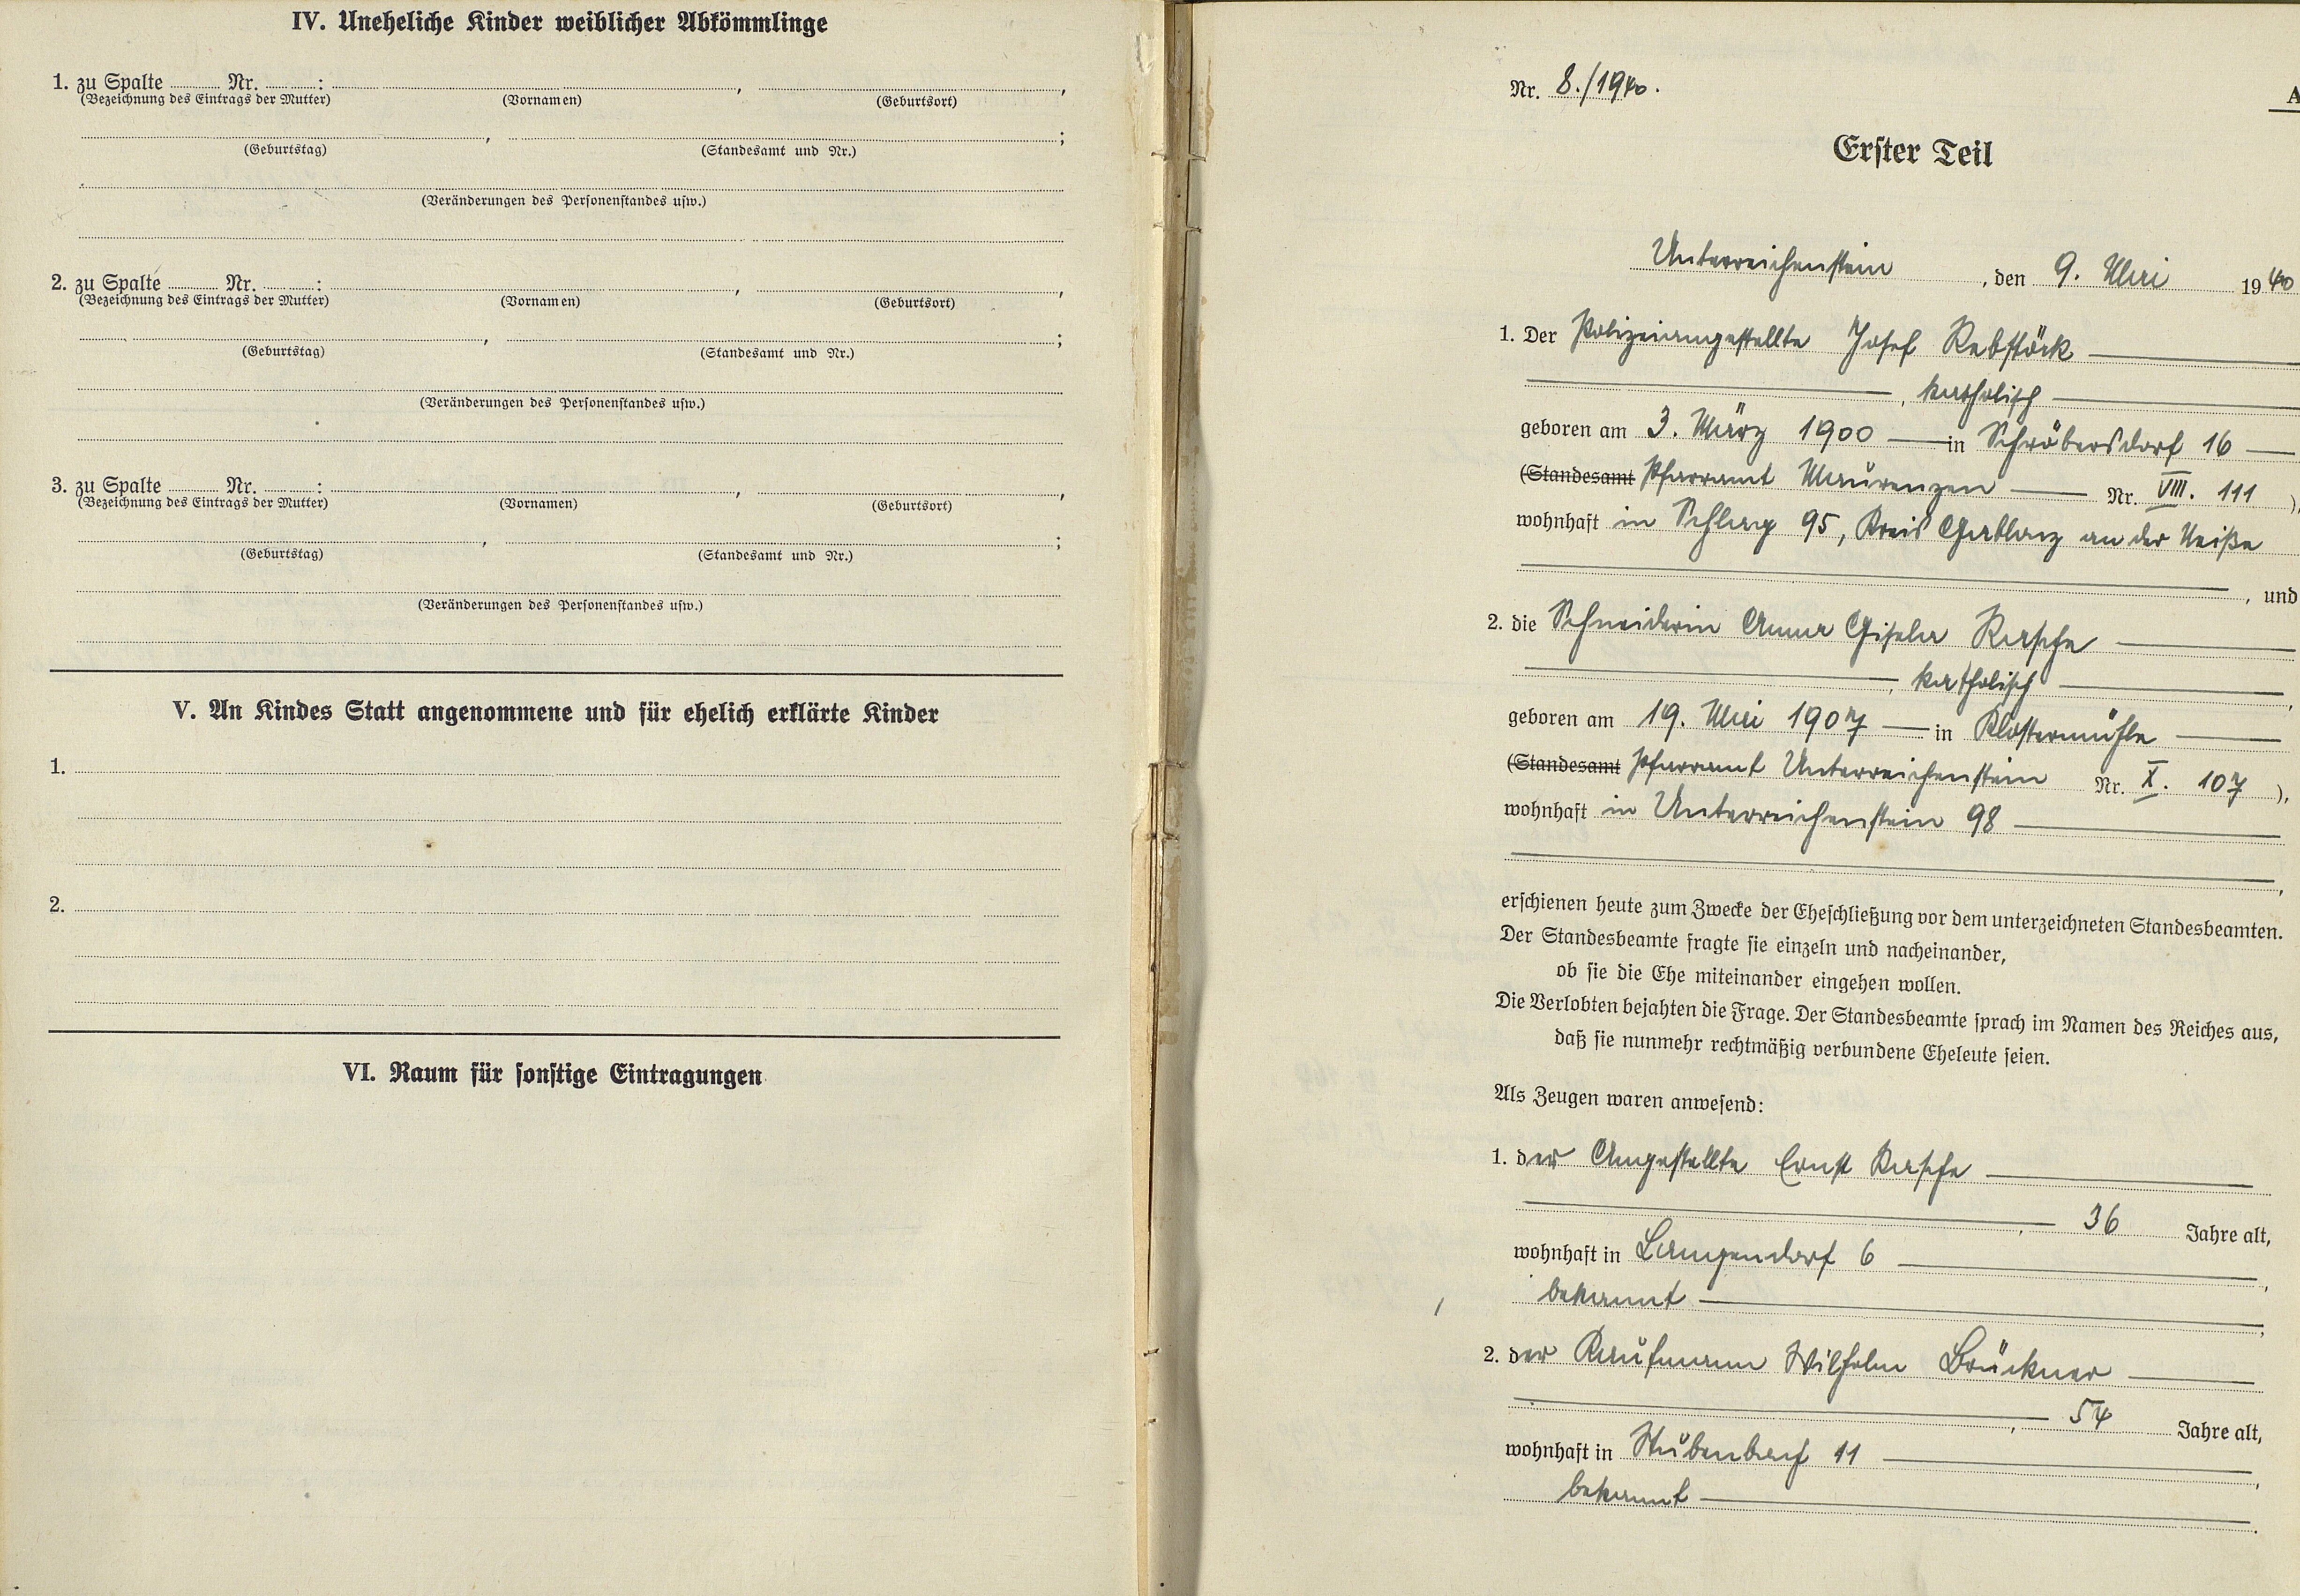 IV. Uneheliche Kinder weiblicher Abkömmlinge
1. zu Spalte ........ Nr. ........: ........, ........,
(Bezeichnung des Eintrags der Mutter) (Vornamen) (Geburtsort)
........, ........;
(Geburtstag) (Standesamt und Nr.)
(Veränderungen des Personenstandes usw.)
2. zu Spalte ........ Nr. ........: ........, ........,
(Bezeichnung des Eintrags der Mutter) (Vornamen) (Geburtsort)
........, ........;
(Geburtstag) (Standesamt und Nr.)
(Veränderungen des Personenstandes usw.)
3. zu Spalte ........ Nr. ........: ........, ........,
(Bezeichnung des Eintrags der Mutter) (Vornamen) (Geburtsort)
........, ........;
(Geburtstag) (Standesamt und Nr.)
(Veränderungen des Personenstandes usw.)
V. An Kindes Statt angenommene und für ehelich erklärte Kinder
1.
2.
VI. Raum für sonstige Eintragungen
Nr. 8./1940.
A
Erster Teil
Unterreichenstein, den 9. Mai 1940
1. Der Polizeiangestellte Josef Rebstöck
, katholisch
geboren am 3. März 1900 — in Schröbersdorf 16
(Standesamt Pfarramt Maurenzen — Nr. VIII. 111 ),
wohnhaft in Schlag 95, Kreis Gablonz an der Neiße
, und
2. die Schneiderin Anna Gisela Rasche
, katholisch
geboren am 19. Mai 1907 — in Klostermühle
(Standesamt Pfarramt Unterreichenstein Nr. X. 107 ),
wohnhaft in Unterreichenstein 98
erschienen heute zum Zwecke der Eheschließung vor dem unterzeichneten Standesbeamten.
Der Standesbeamte fragte sie einzeln und nacheinander,
ob sie die Ehe miteinander eingehen wollen.
Die Verlobten bejahten die Frage. Der Standesbeamte sprach im Namen des Reiches aus,
daß sie nunmehr rechtmäßig verbundene Eheleute seien.
Als Zeugen waren anwesend:
1. der Angestellte Ernst Rasche
, 36 Jahre alt,
wohnhaft in Langendorf 6
bekannt
2. der Kaufmann Wilhelm Brückner
, 54 Jahre alt,
wohnhaft in Stubenbach 11
bekannt